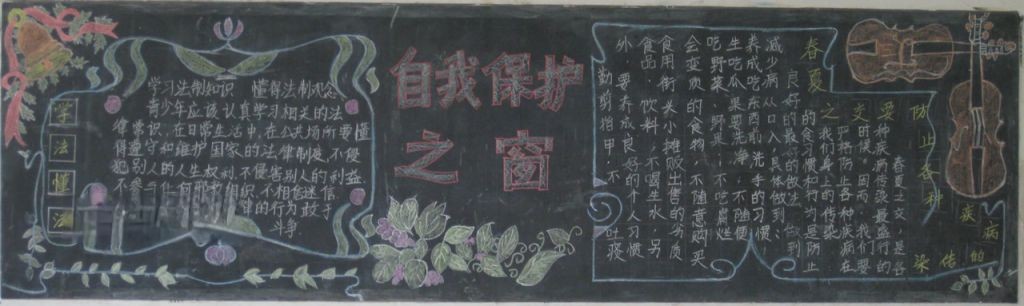 学法懂法
学习法制知识 懂得法制观念
青少年应该认真学习相关的法
律常识,在日常生活中,在公共场所要懂
得遵守和维护国家的法律制度,不侵
犯别人的人生权利,不害别人的利益
不参与任何邪教组织,不相信迷信
行为敢于
斗争
自我保护
之窗
春夏之交要防止各种疾病的传染
春夏之交,是各
种疾病传染最盛行的
时候。因而,我们要
严格防止各种疾病在
我们身上的传染。
的食习惯和行为是防止
良好的最好的做法 做到
减少病从口入,具体做到:
养成吃东西前,洗手的习惯
生吃瓜果要洗净,不随便
吃野菜、野果;不吃腐烂
会变质的食物,不随意购买
食用街头小摊贩出售的劣质
食品、饮料,不喝生水。另
外,要养成良好的个人习惯
勤剪指甲,不吐痰